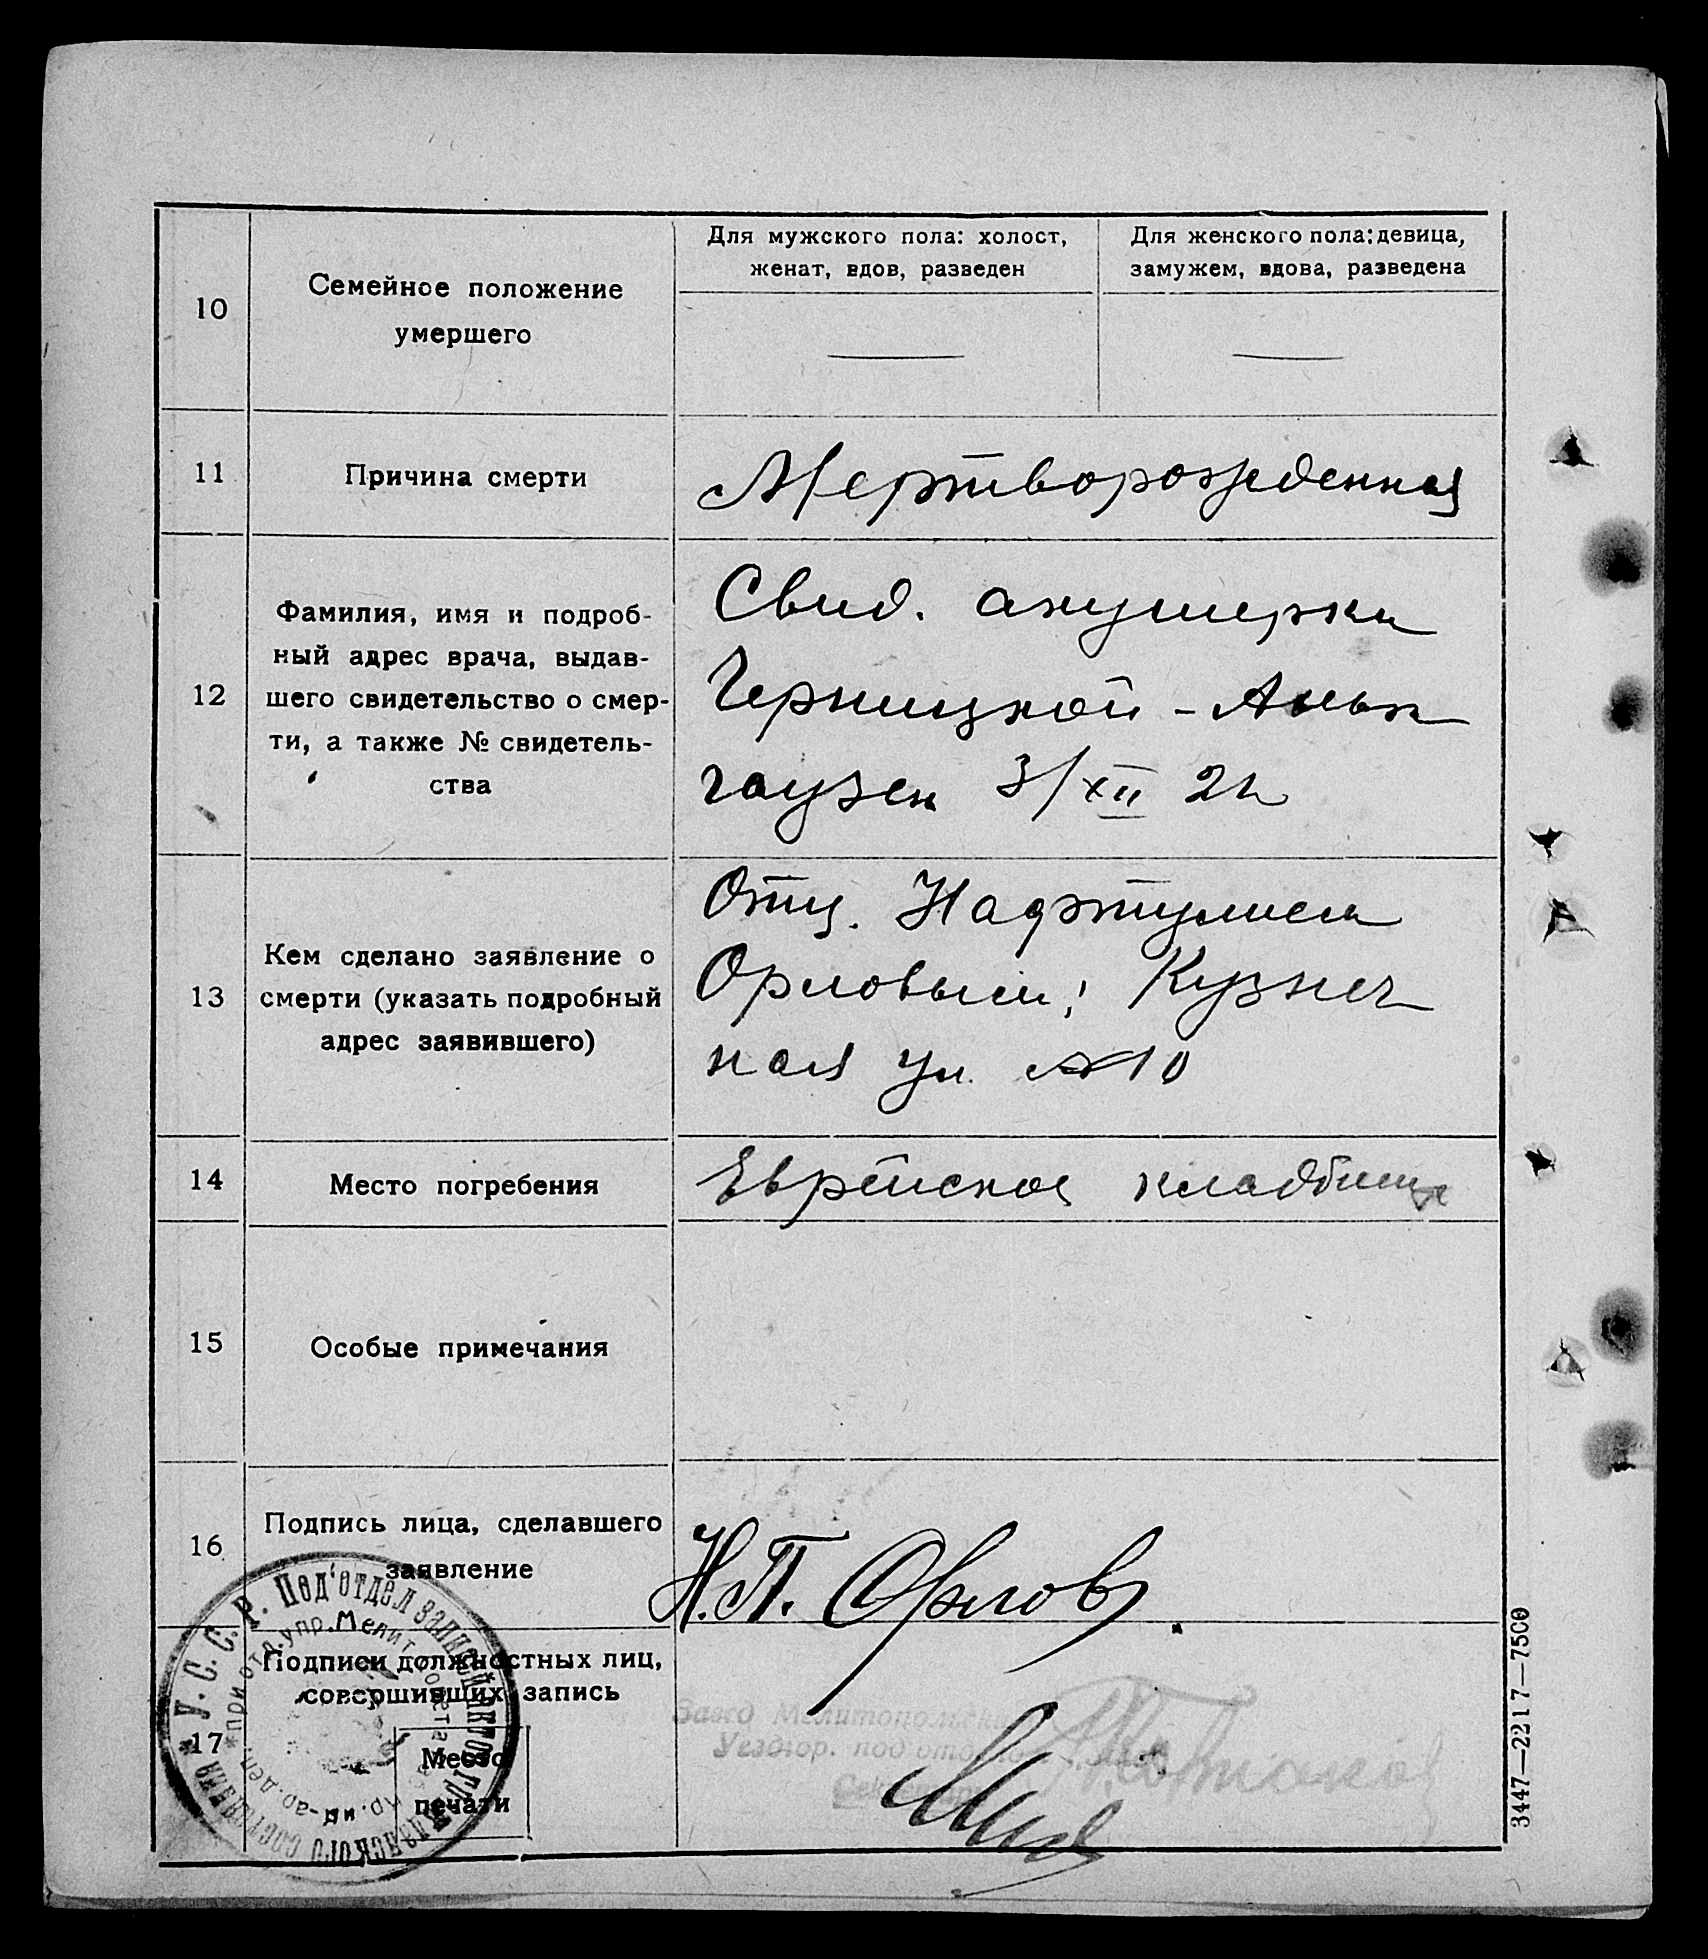 10
Семейное положение
умершего
Для мужского пола: холост,
женат, вдов, разведен
Для женского пола: девица,
замужем, вдова, разведена
11
Причина смерти
Мертворожденная
12
Фамилия, имя и подроб-
ный адрес врача, выдав-
шего свидетельство о смер-
ти, а также № свидетель-
ства
Свид. акушерки
Черницкой - Альт
гаузен 3/XII 2
13
Кем сделано заявление о
смерти (указать подробный
адрес заявившего)
Отц. Нафтулием
Орловым; Кузнеч
ная ул. №10
14
Место погребения
Еврейское кладбище
15
Особые примечания
16
Подпись лица, сделавшего
заявление
Н.П. Орлов
17
Подписи должностных лиц,
совершивших запись
Место
печати
У. С. С. Р. Под'отдел записей актов гражданского состояния
при отд. упр. Мелит.
Завед Мелитопольским
Уездюр. подотделом
Секретарь
3447—2217—7500